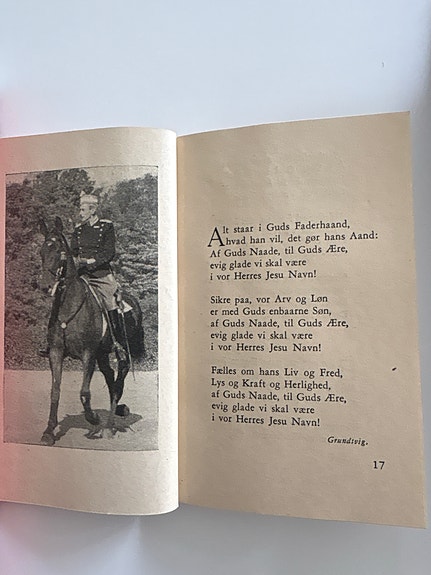 Alt staar i Guds Faderhaand,
hvad han vil, det gør hans Aand:
Af Guds Naade, til Guds Ære,
evig glade vi skal være
i vor Herres Jesu Navn!
Sikre paa, vor Arv og Løn
er med Guds enbaarne Søn,
af Guds Naade, til Guds Ære,
evig glade vi skal være
i vor Herres Jesu Navn!
Fælles om hans Liv og Fred,
Lys og Kraft og Herlighed,
af Guds Naade, til Guds Ære,
evig glade vi skal være
i vor Herres Jesu Navn!
Grundtvig.
17